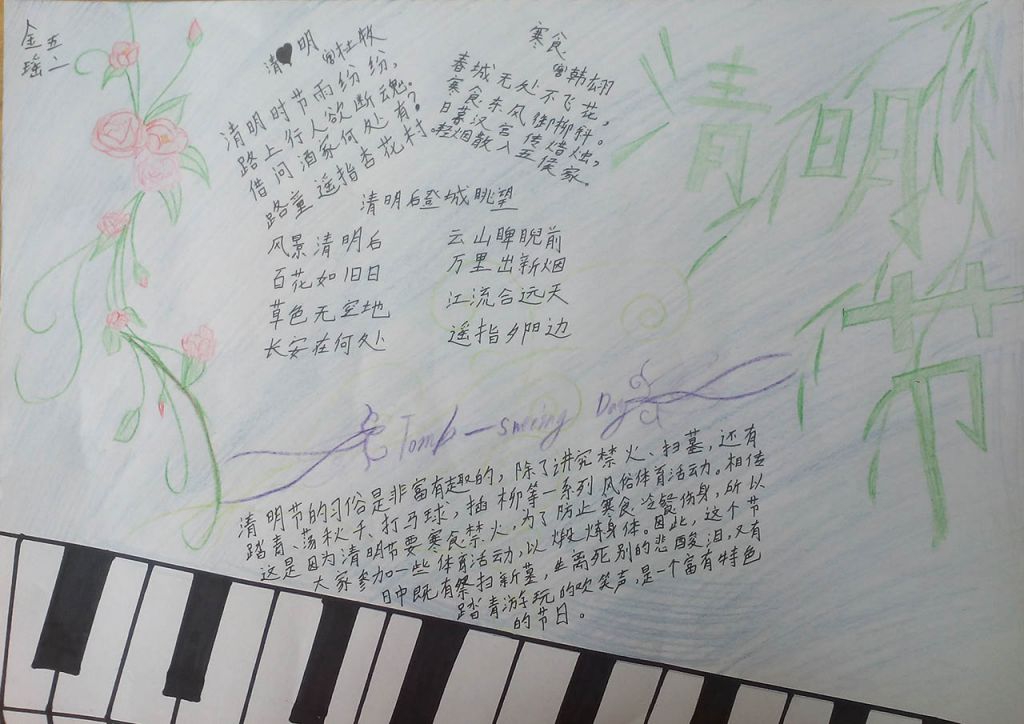 五二
金瑶
清明
唐杜牧
清明时节雨纷纷，
路上行人欲断魂。
借问酒家何处有？
路童遥指杏花村。
寒食
唐韩翃
春城无处不飞花，
寒食东风御柳斜。
日暮汉宫传烛，
轻烟散入五侯家。
清明后登城眺望
风景清明后 云山睥睨前
百花如旧日 万里出新烟
草色无空地 江流合远天
长安在何处 遥指夕阳边
清明
节
Tomb-Day
清明节的习俗是非富有趣的，除了讲究禁火、扫墓，还有
踏青、荡秋千、打马球，插柳等一系列风俗体育活动。相传
这是因为清明节要寒食禁火，为了防止寒食冷餐伤身，所以
大家参加一些体育活动，以煅炼身体。因此，这个节
日中既有祭扫新墓，生离死别的悲酸泪，又有
踏青游玩的欢笑声，是一个富有特色
的节日。